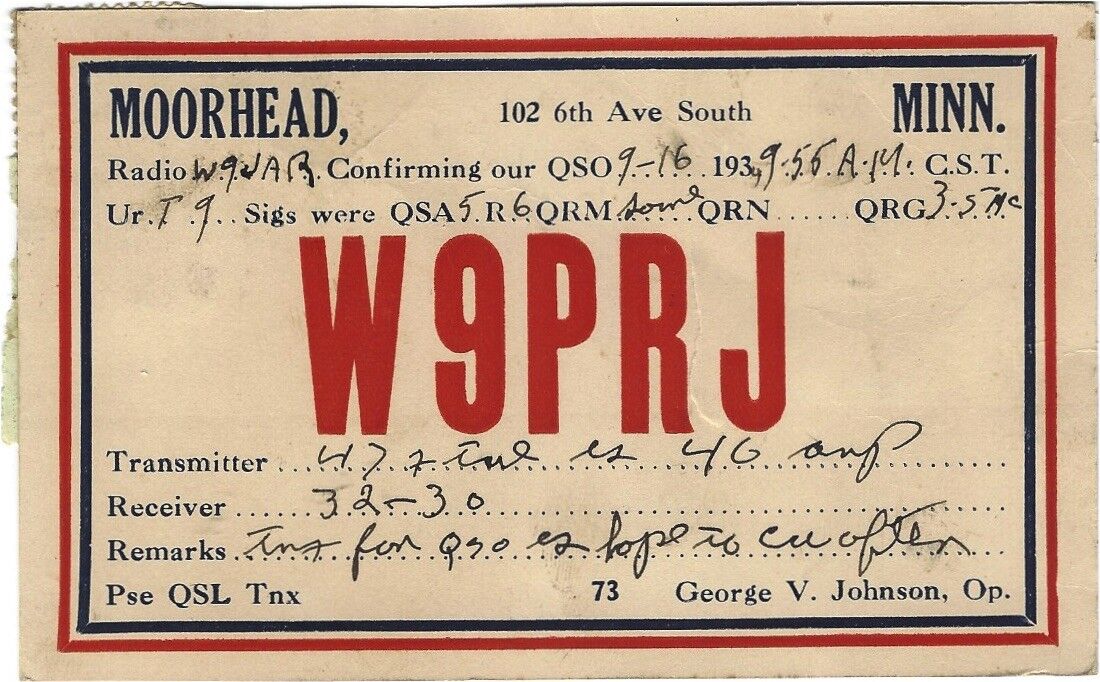 MOORHEAD, 102 6th Ave South MINN.
Radio W9JAR Confirming our QSO 9-16 193 9-55 A.M. C.S.T.
Ur T 9 Sigs were QSA 5 R 6 QRM some QRN ...... QRG 3-5 Mc
W9PRJ
Transmitter 47 xtal es 46 amp
Receiver 32-30
Remarks Tnx for QSO es hope to cu often
Pse QSL Tnx 73 George V. Johnson, Op.